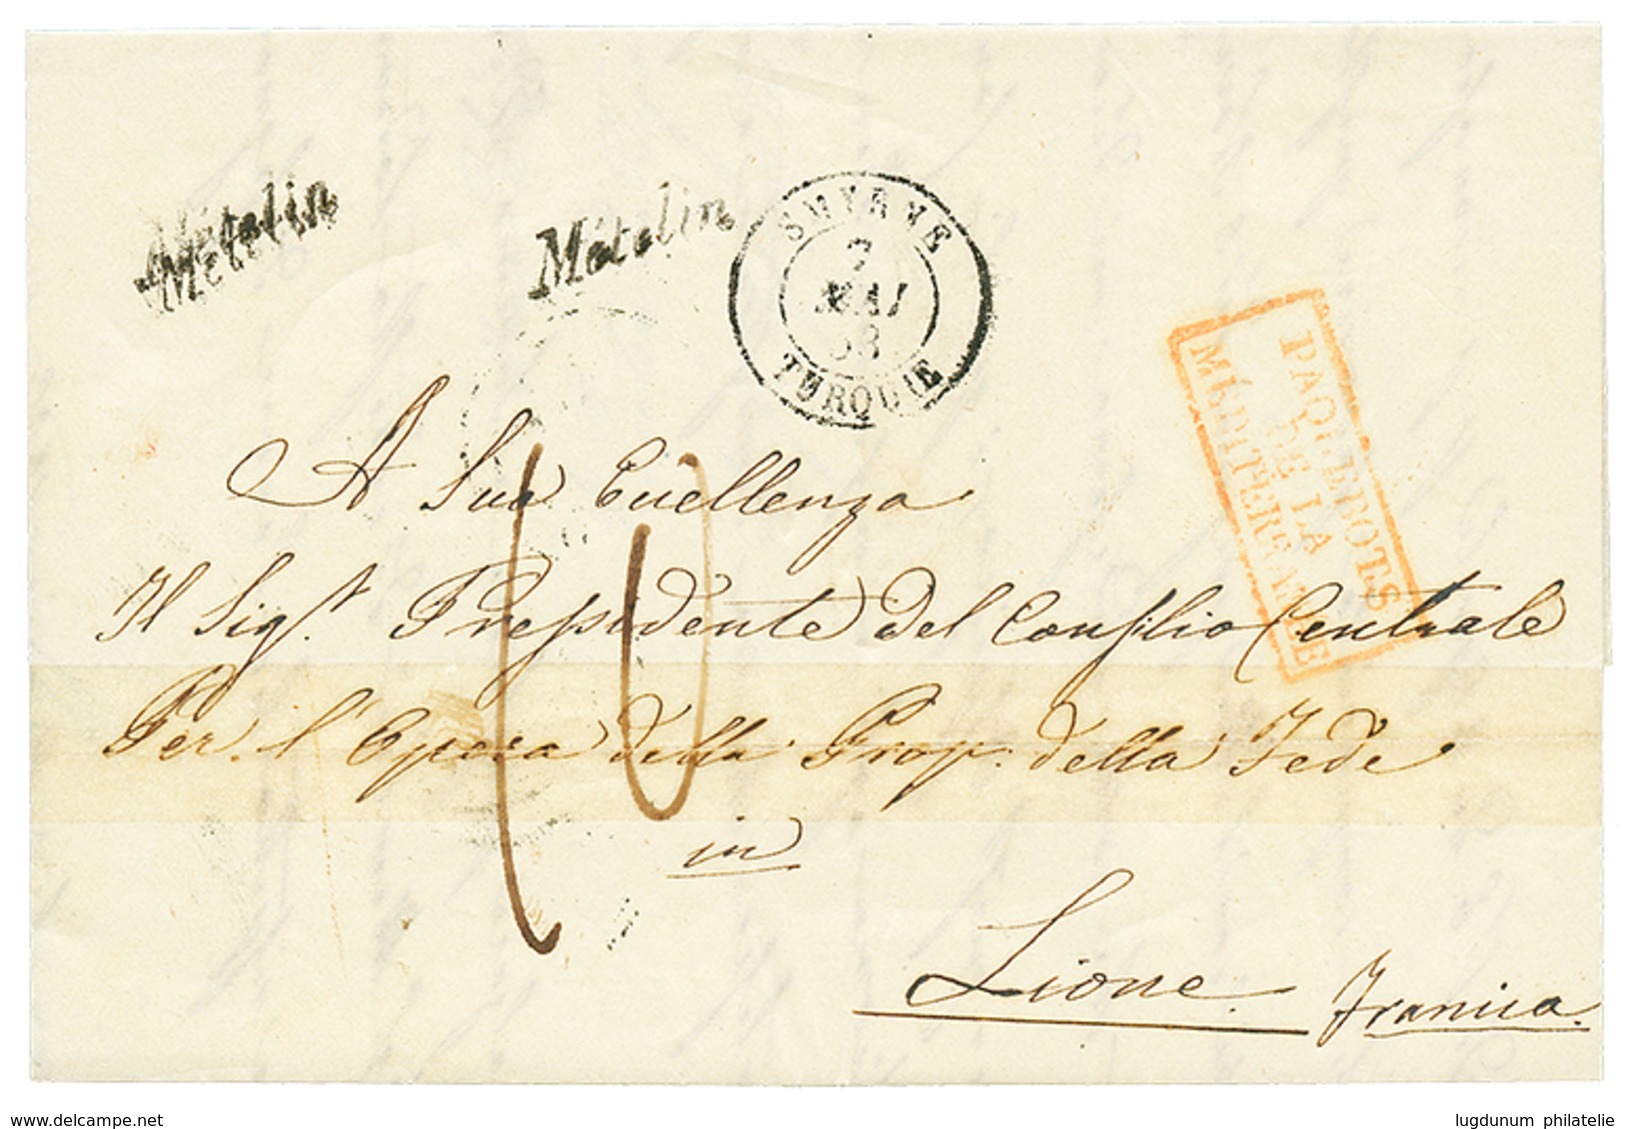 Métélin
Métélin
SMYRNE
7
MAI
53
TURQUIE
PAQUEBOTS
DE LA
MÉDITERRANÉE
10
A Sua Eccellenza
Il Sigr. Presidente del Consiglio Centrale
Per. l'Opera della Prop. della Fede
in
Lione. Francia.
delcampe.net
lugdunum philatelie